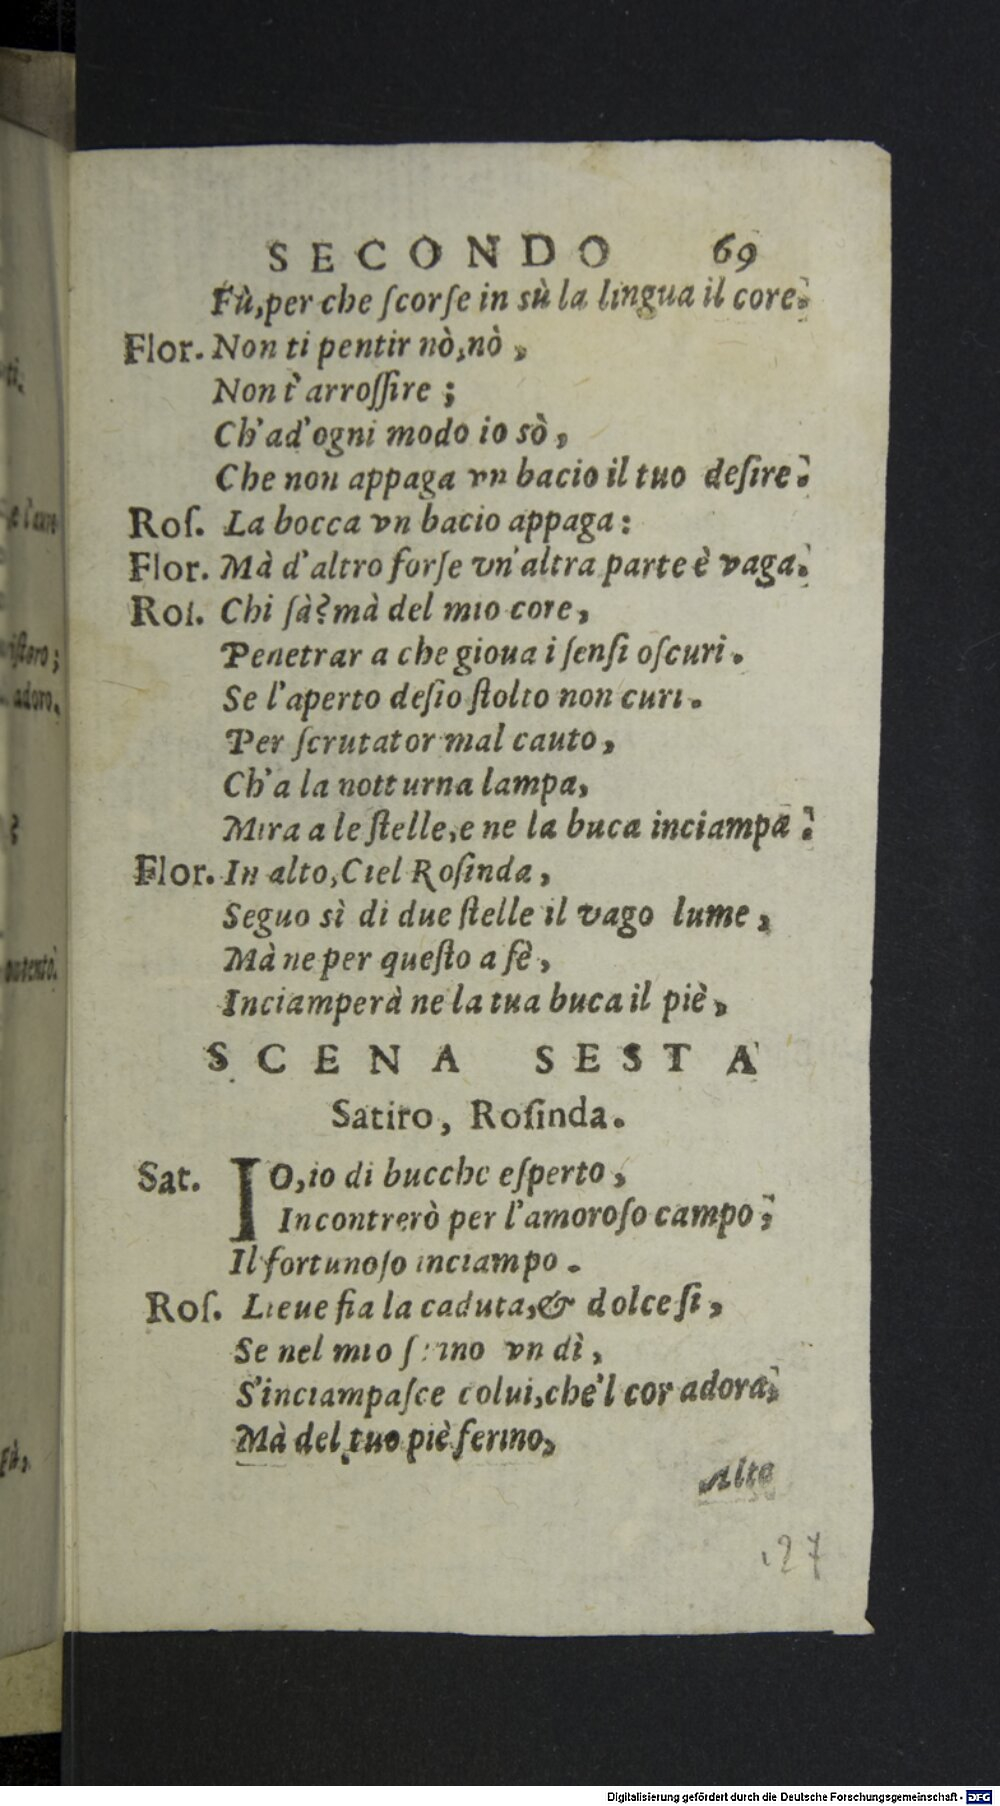 SECONDO 69
Fù, per che ſcorſe in sù la lingua il core.
Flor. Non ti pentir nò, nò,
Non t'arroſſire;
Ch'ad'ogni modo io sò,
Che non appaga vn bacio il tuo deſire.
Roſ. La bocca vn bacio appaga:
Flor. Mà d'altro forſe vn'altra parte è vaga.
Roſ. Chi ſà? mà del mio core,
Penetrar a che gioua i ſenſi oſcuri.
Se l'aperto deſio ſtolto non curi.
Per ſcrutator mal cauto,
Ch'a la notturna lampa,
Mira a le ſtelle, e ne la buca inciampa.
Flor. In alto, Ciel Roſinda,
Seguo sì di due ſtelle il vago lume,
Mà ne per queſto a fè,
Inciamperà ne la tua buca il piè,
SCENA SESTA
Satiro, Roſinda.
Sat. IO, io di bucche eſperto,
Incontrerò per l'amoroſo campo;
Il fortunoſo inciampo.
Roſ. Lieue fia la caduta, & dolce ſi,
Se nel mio vn dì,
S'inciampaſce colui, che'l cor adora,
Mà del tuo piè fermo,
Alte
27
ti,
e l'aure
iſtoro;
adoro.
?
ontento.
Digitalisierung gefördert durch die Deutsche Forschungsgemeinschaft - DFG